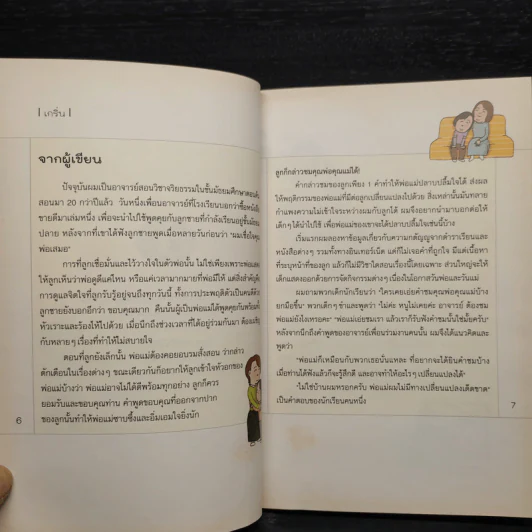 | เกริ่น |
จากผู้เขียน
ปัจจุบันผมเป็นอาจารย์สอนวิชาจริยธรรมในชั้นมัธยมศึกษาตอนต้น
สอนมา 20 กว่าปีแล้ว วันหนึ่งเพื่อนอาจารย์ที่โรงเรียนบอกว่าซื้อหนังสือ
ชายตีมาเล่มหนึ่ง เพื่อจะนำไปใช้พูดคุยกับลูกชายที่กำลังเรียนอยู่ชั้นมัธยม
ปลาย หลังจากที่เขาได้ฟังลูกชายพูดเมื่อหลายวันก่อนว่า "ผมเชื่อใจคุณ
พ่อเสมอ"
การที่ลูกเชื่อมั่นและไว้วางใจในตัวพ่อนั้น ไม่ใช่เพียงเพราะพ่อแสดง
ให้ลูกเห็นว่าพ่อดูดีแค่ไหน หรือแค่เวลามากมายที่พ่อมีให้ แต่สิ่งสำคัญคือ
การดูแลจิตใจที่ลูกรับรู้อยู่จนถึงทุกวันนี้ ทั้งการประพฤติตัวเป็นคนดี
ชายยังบอกอีกว่า ขอบคุณมาก คืนนั้นผู้เป็นพ่อแม่ได้พูดคุยกันพร้อมทั้ง
หัวเราะและร้องไห้ไปด้วย เมื่อนึกถึงช่วงเวลาที่ได้อยู่ร่วมกันมา ต้องเผชิญ
กับหลายๆ เรื่องที่ทำให้ไม่สบายใจ
ตอนที่ลูกยังเล็กนั้น พ่อแม่ต้องคอยอบรมสั่งสอน ว่ากล่าว
ตักเตือนในเรื่องต่างๆ ขณะเดียวกันก็อยากให้ลูกเข้าใจหัวอกของ
พ่อแม่บ้างว่า พ่อแม่อาจไม่ได้ดีพร้อมทุกอย่าง ลูกก็ควร
ยอมรับและขอบคุณท่าน คำพูดขอบคุณที่ออกจากปาก
ของลูกนั้นทำให้พ่อแม่ซาบซึ้งและอิ่มเอมใจยิ่งนัก
6
ลูกก็กล่าวชมคุณพ่อคุณแม่ได้!
คำกล่าวชมของลูกเพียง 1 คำทำให้พ่อแม่ปลาบปลื้มใจได้ ส่งผล
ให้พฤติกรรมของพ่อแม่ที่มีต่อลูกเปลี่ยนแปลงไปด้วย สิ่งเหล่านั้นมันทลาย
กำแพงความไม่เข้าใจระหว่างผมกับลูกได้ ผมจึงอยากนำมาบอกต่อให้
เด็กๆ ได้นำไปใช้ เพื่อพ่อแม่ของเขาจะได้ปลาบปลื้มใจเช่นนี้บ้าง
เริ่มแรกผมลองหาข้อมูลเกี่ยวกับความกตัญญูจากตำราเรียนและ
หนังสือต่างๆ รวมทั้งทางอินเทอร์เน็ต แต่ก็ไม่เจอคำที่ถูกใจ มีแต่เนื้อหา
ที่ระบุหน้าที่ของลูก แล้วก็ไม่มีวิชาใดสอนเรื่องนี้โดยเฉพาะ ส่วนใหญ่จะให้
เด็กแสดงออกด้วยการจัดกิจกรรมต่างๆ เนื่องในโอกาสวันพ่อและวันแม่
ผมถามพวกเด็กนักเรียนว่า "ใครเคยเอ่ยคำชมคุณพ่อคุณแม่บ้าง
ยกมือขึ้น" พวกเด็กๆ ขำและพูดว่า "ไม่ค่ะ หนูไม่เคยค่ะ อาจารย์ ต้องชม
พ่อแม่ยังไงเหรอคะ" "พ่อแม่เอ่ยชมเรา แล้วเราก็รับฟังคำชมนั้นใช่มั้ยครับ"
หลังจากนึกถึงคำพูดของอาจารย์เพื่อนร่วมงานคนนั้น ผมจึงได้แนวคิดและ
พูดว่า
"พ่อแม่ก็เหมือนกับพวกเธอนั่นแหละ ที่อยากจะได้ยินคำชมบ้าง
เมื่อท่านได้ฟังแล้วก็จะรู้สึกดี และอาจทำให้อะไรๆ เปลี่ยนแปลงได้"
"ไม่ใช่บ้านผมหรอกครับ พ่อแม่ผมไม่มีทางเปลี่ยนแปลงเด็ดขาด"
เป็นคำตอบของนักเรียนคนหนึ่ง
7